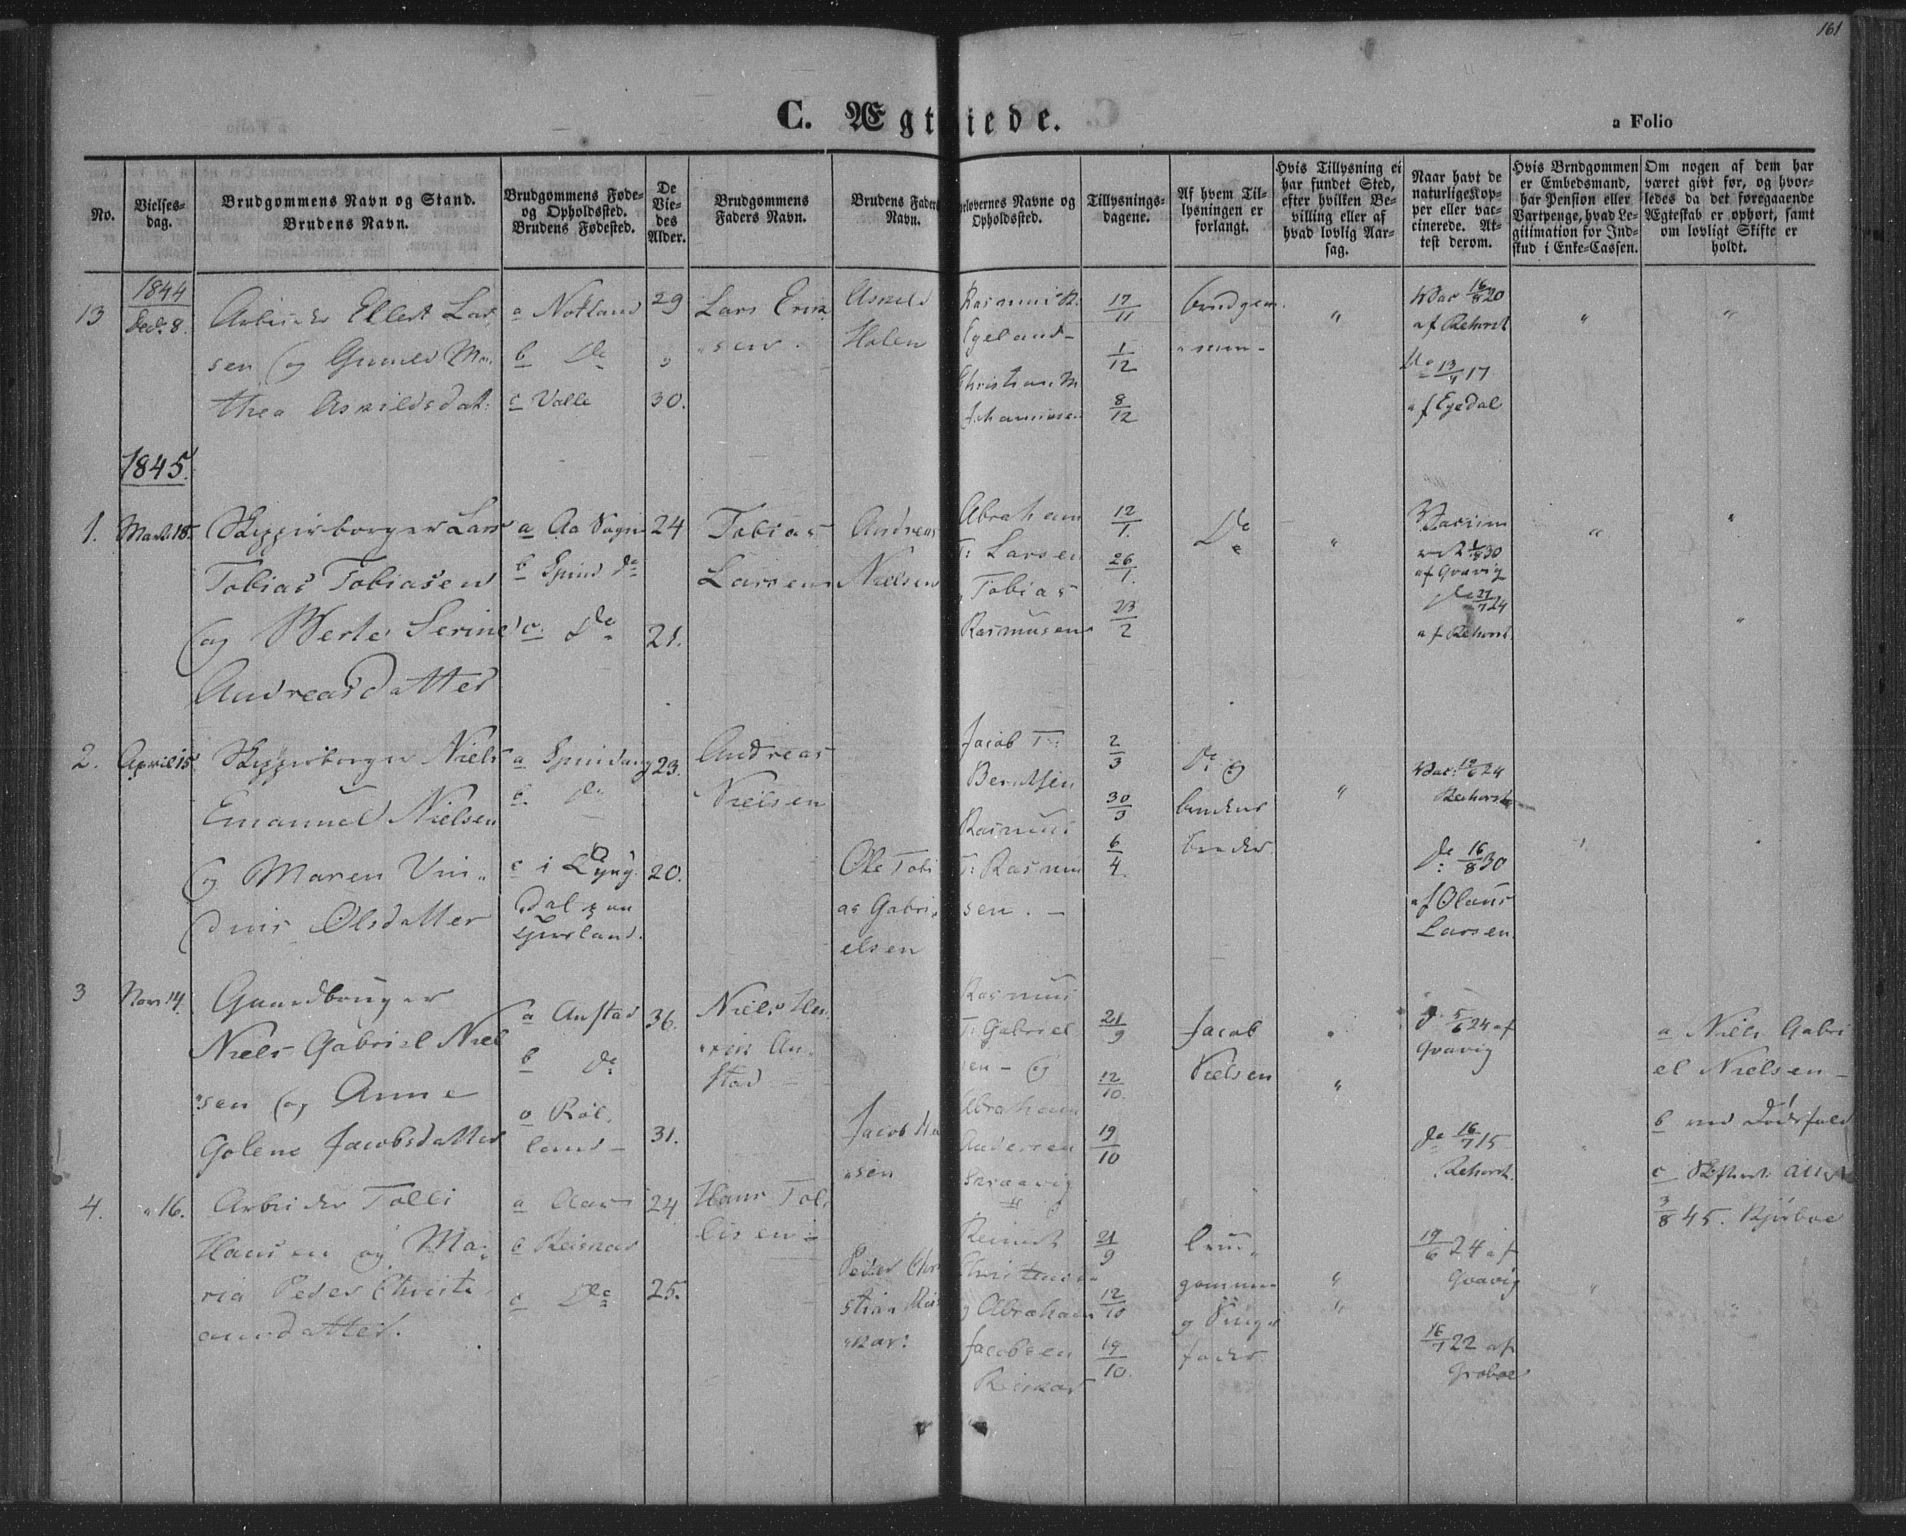 161
C. Ægtviede.
a Folio
No.
Vielses-
dag.
Brudgommens Navn og Stand.
Brudens Navn.
Brudgommens Føde-
og Opholdssted.
Brudens Fødested.
De
Vie-
des
Alder.
Brudgommens
Faders Navn.
Brudens Faders
Navn.
Forlovernes Navne og
Opholdssted.
Tillysnings-
dagene.
Af hvem Til-
lysningen er
forlangt.
Hvis Tillysning ei
har fundet Sted,
efter hvilken Be-
villing eller af
hvad lovlig Aar-
sag.
Naar havt de
naturlige Kop-
per eller vac-
cinerede. At-
test derom.
Hvis Brudgommen
er Embedsmand,
har Pension eller
Vartpenge, hvad Le-
gitimation for Ind-
skud i Enke-Cassen.
Om nogen af dem har
været givt før, og hvor-
ledes da det foregaaende
Ægteskab er ophørt, samt
om lovligt Skifte er
holdt.
13
1844
Decr 8.
Arbeider Ellert Lar
sen og Gunild Ma
thea Askildsdat:
a Notland
b Do
c Valle
29
30.
Lars Erik
sen.
Askild
Holen
Rasmus R.
Egeland
Christian M
Johannesen
17/11
1/12
8/12
brudgom
men
Vac 16/8 20
af Rehorst
Do 13/9 17
af Egedal
1845.
1.
Marts 18.
Skipperborger Lars
Tobias Tobiasen
og Berte Serine
Andreasdatter
a Aa Sogn
b Spind do
c. do
24
21.
Tobias
Larsen
Andreas
Nielsen
Abraham
T: Larsen
Tobias
Rasmusen
12/1.
26/1.
23/2
Do
Vaccine
ved 1/8 30
af Gravig
do 21/7 24
af Rehorst.
2.
April 15
Skipperborger Niels
Emanuel Nielsen
og Maren Vin
dnis Olsdatter
a Spindang
b. do
c i Lyng
dal paa
23.
20.
Andreas
Nielsen
Ole Tobi
as Gabri
elsen
Jacob T:
Berntsen
Rasmus
T: Rasmu
sen.
2/3
30/3
6/4.
Do og
brudens
broder
Vac: 12/6 24
Rehorst
do: 16/8 30
af Olaus
Larsen.
3
Novr 14.
Gaardbruger
Niels Gabriel Niel
sen og Anne
Golene Jacobsdatter
a Anstad
b do
c Røl
land
36.
31.
Niels Hen
rik An
stad
Jacob Ha
sen
Rasmus
T: Gabriel
sen og
Abraham
Andersen
21/9
12/10.
19/10
Jacob
Nielsen
do 5/6 24 af
Gravig
do 16/7 15
Rehorst.
a Niels Gabri
el Nielsen
b ved Dødsfald
c Skiftet
3/8 45.
4.
" 16.
Arbeider Tolli
Hansen og Ma
ria Peder Christi
ansdatter.
a Aar
b Reisnes
c do
24
25.
Hans Tol
lisen
Peder Chri
stian Reis
Reinert
Christensen
og Abraham
Jacobsen
21/9
12/10
19/10.
brud
gommen
og Pige
fader
19/6 24 af
Gravig
16/7 22 af